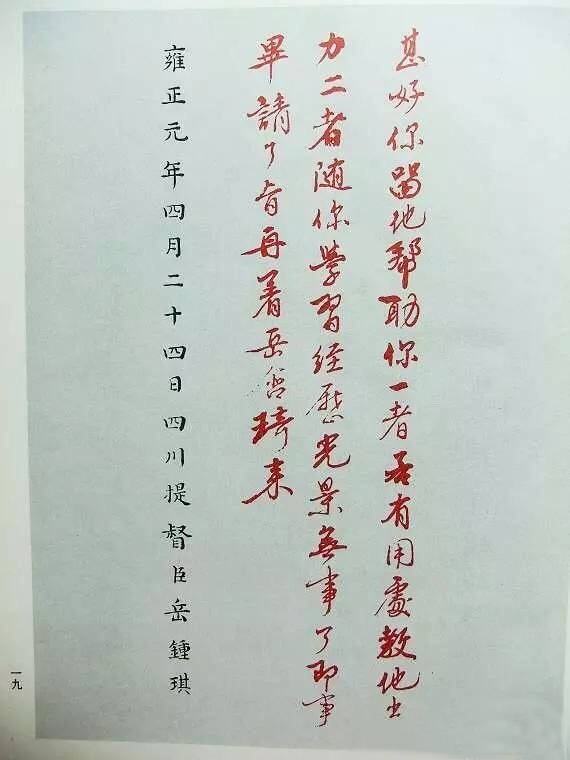 甚好你留他帮助你一者若有用處教他出
力二者随你學習經歷光景無事了即事
畢請了旨再著岳含琦来
雍正元年四月二十四日四川提督臣岳鍾琪
一九